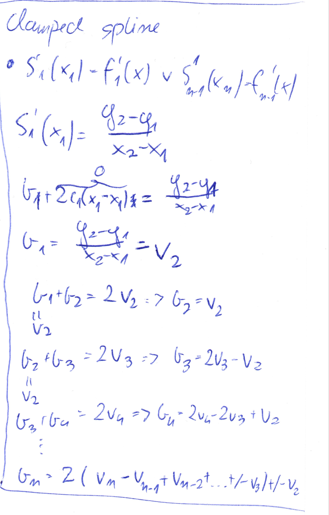 Clamped spline
• S'₁(x₁) = f'₁(x) ∨ S'ₙ₋₁(xₙ) = f'ₙ₋₁(x)
S'₁(x₁) = (y₂-y₁)/(x₂-x₁)
0
b₁ + 2c₁(x₁-x₁) = (y₂-y₁)/(x₂-x₁)
b₁ = (y₂-y₁)/(x₂-x₁) = v₂
b₁+b₂ = 2v₂ => b₂ = v₂
॥
v₂
b₂+b₃ = 2v₃ => b₃ = 2v₃-v₂
॥
v₂
b₃+b₄ = 2v₄ => b₄ = 2v₄-2v₃+v₂
⋮
bₙ = 2(vₙ-vₙ₋₁+vₙ₋₂+...+/-v₃)+/-v₂